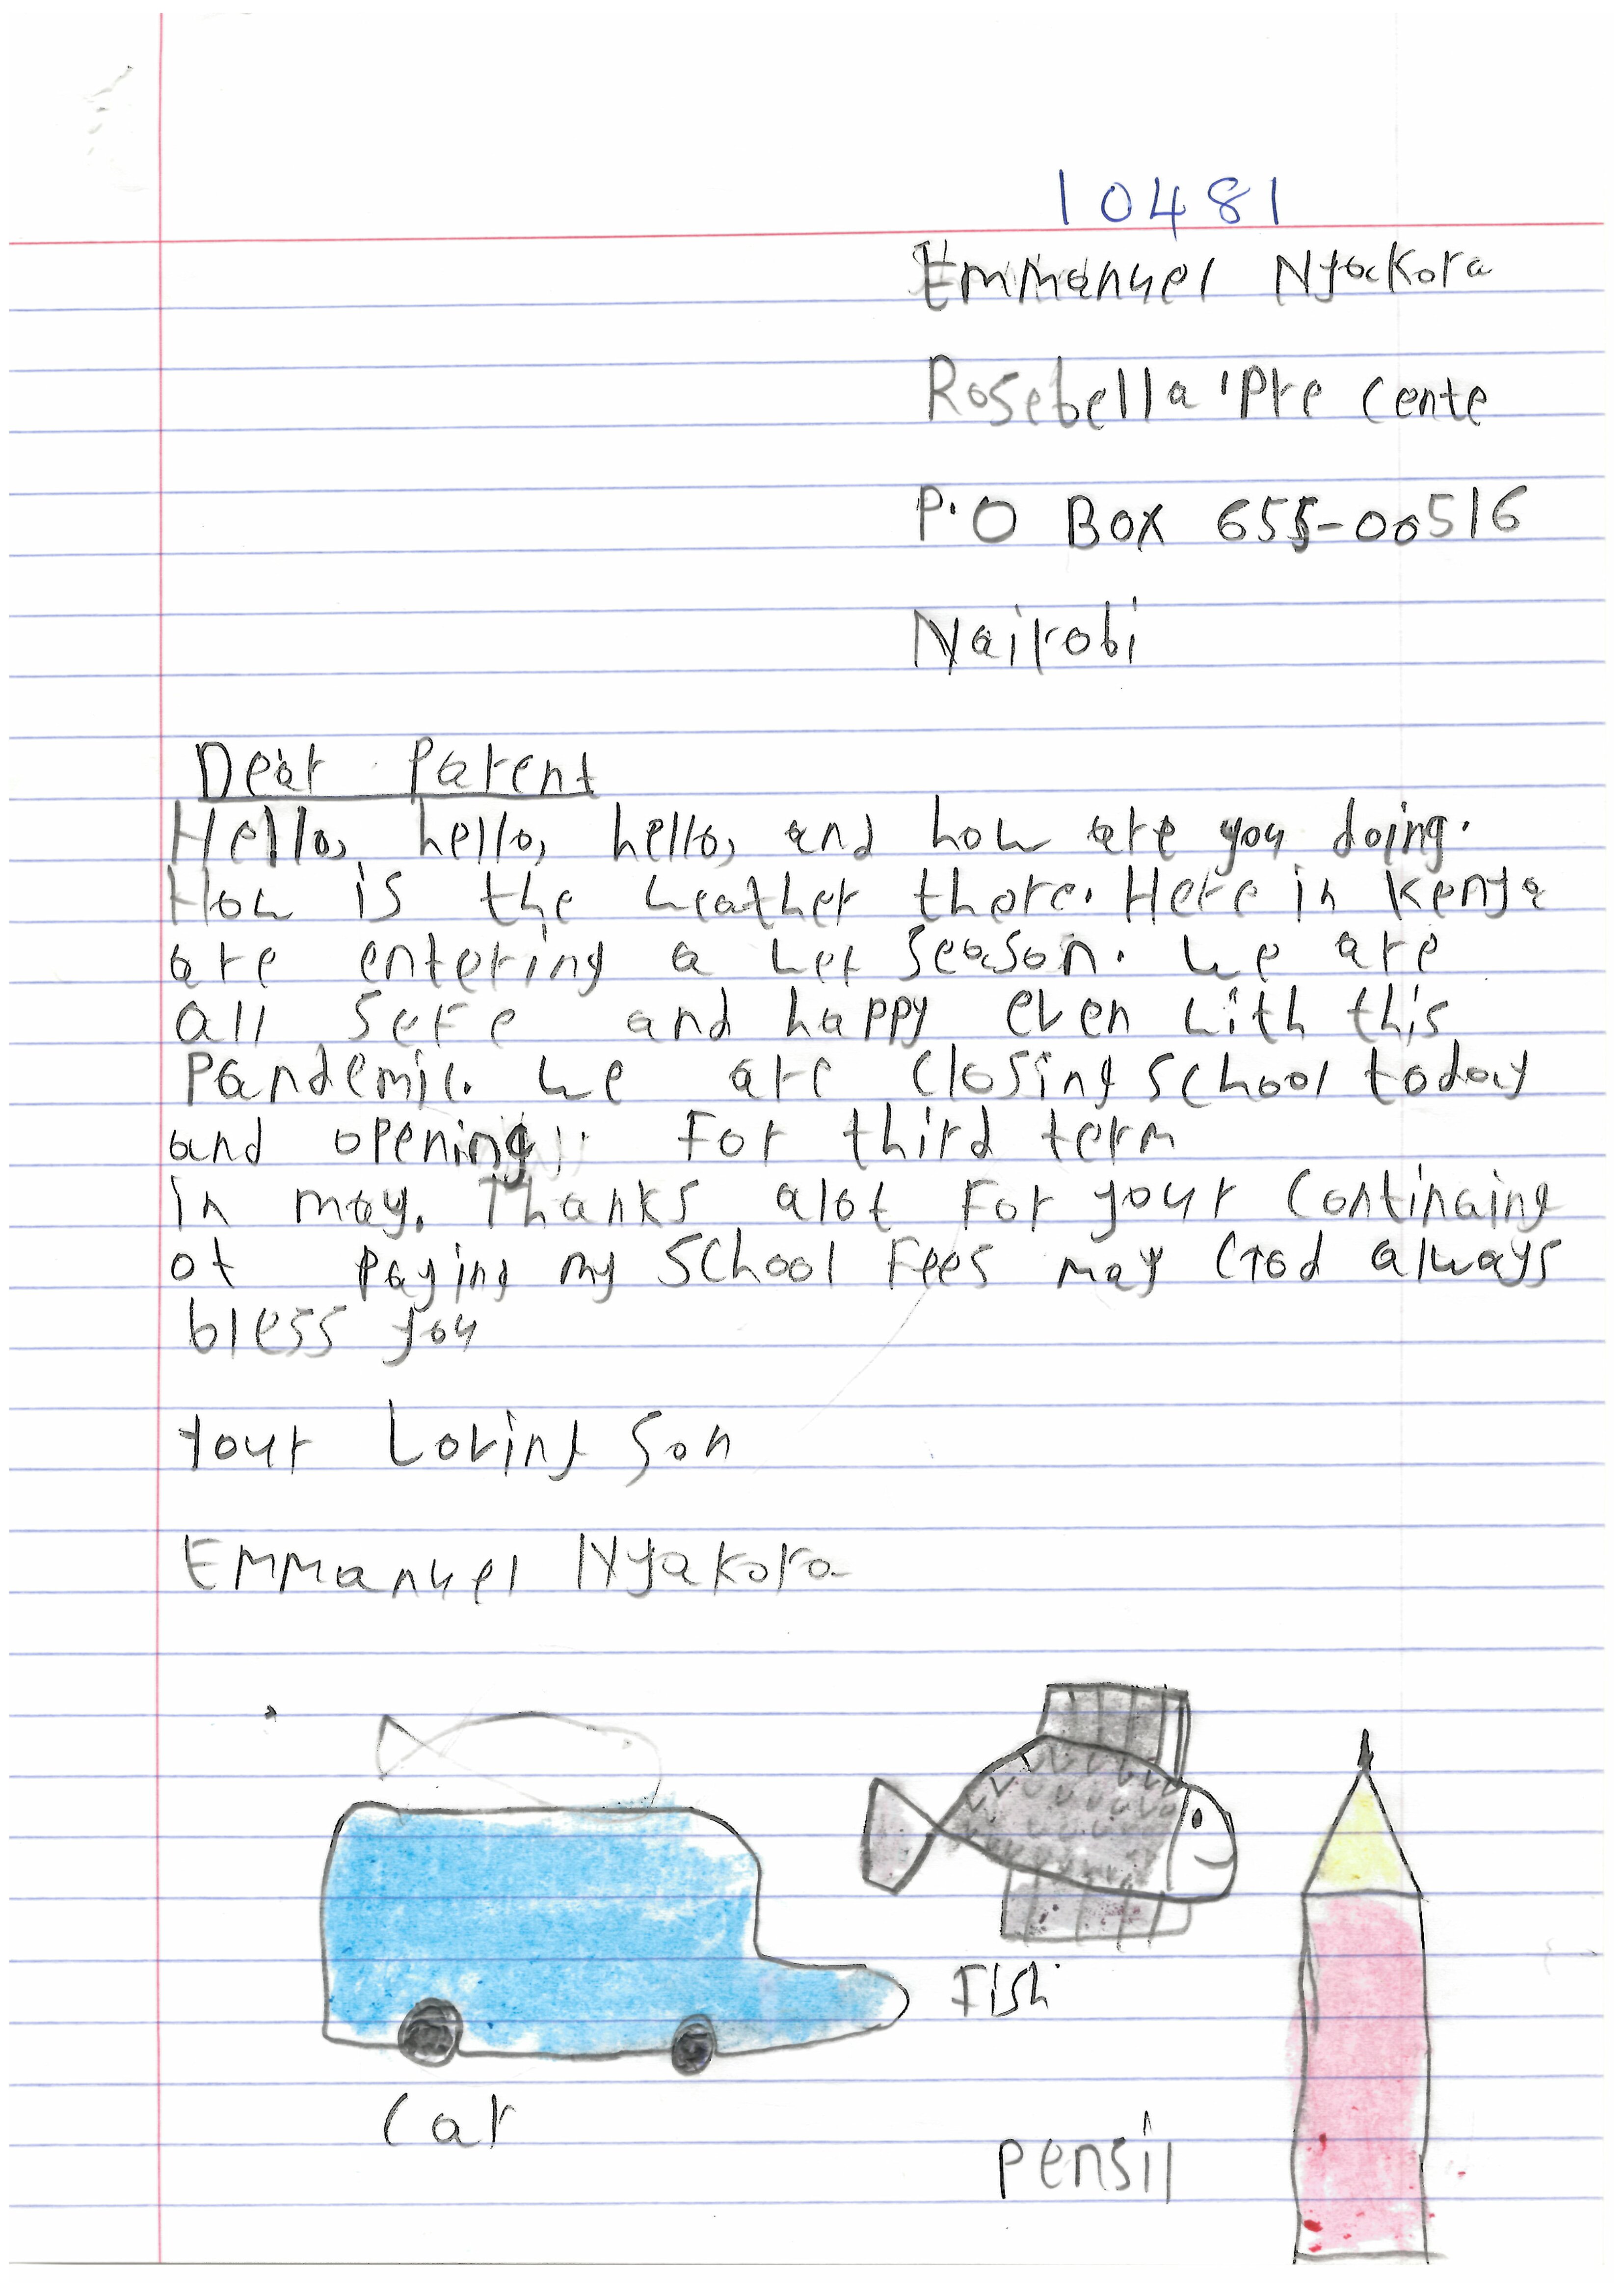 10481
Emmanuel Nyakora
Rosebella 'Pre Cente
P.O Box 655-00516
Nairobi
Dear Parent
Hello, hello, hello, and how are you doing.
How is the weather there. Here in Kenya
are entering a wet season. we are
all sefe and happy even with this
Pandemic. we are closing school today
and opening For third term
in may. Thanks alot For your continaing
of paying my school Fees may God always
bless you
Your Loving Son
Emmanuel Nyakora
Fish
Car
pensil